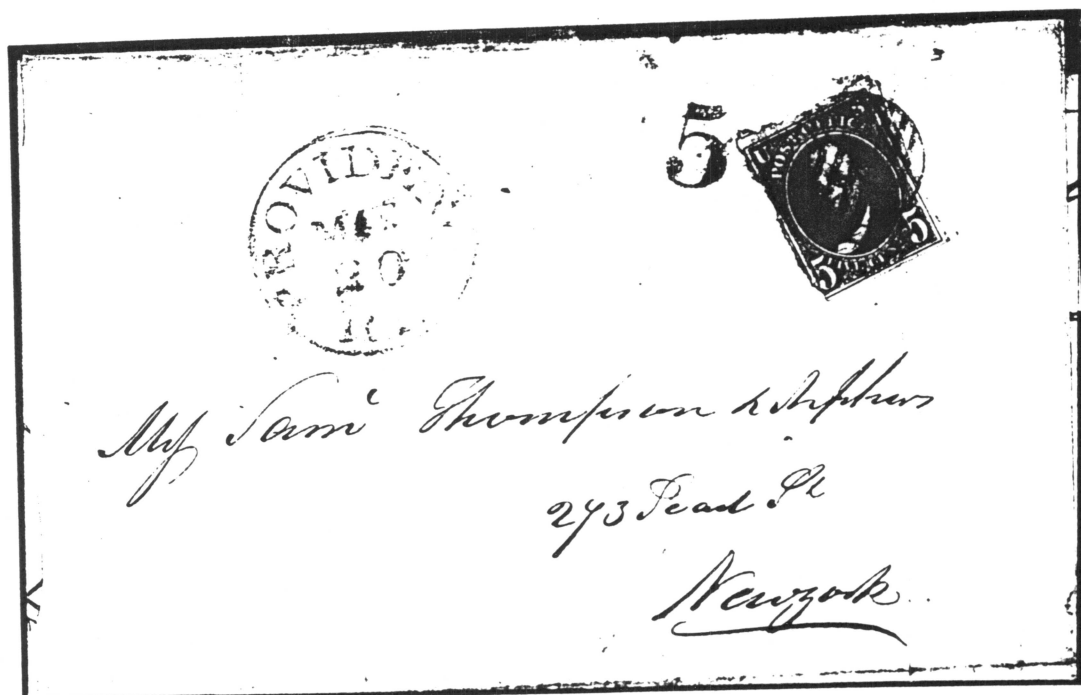 PROVIDEN
MAR
20
R
5
POST OFFICE
5 CENTS 5
Mess Saml Thompson & Nephews
273 Pearl St
New York